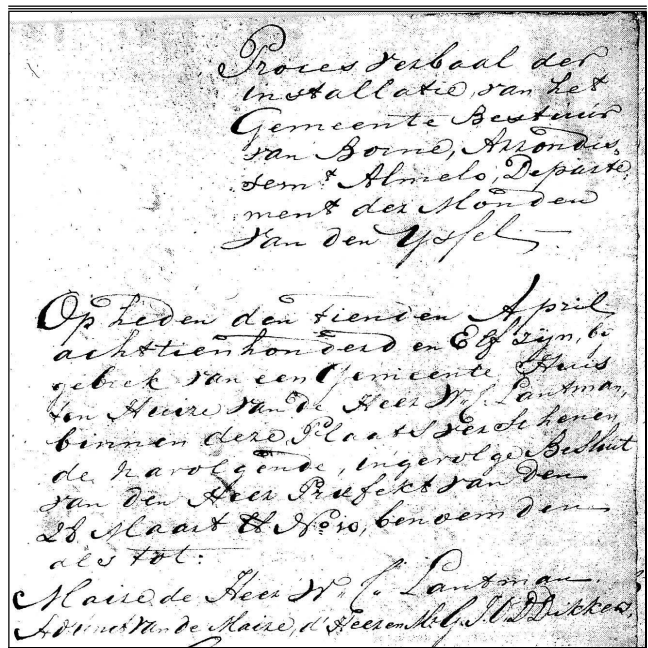 Proces verbaal der
installatie, van het
Gemeente Bestuur
van Borne, Arrondis,
sem.t Almelo, Departe,
ment der Monden
van den Yssel
Op heden den tienden April
achttienhonderd en Elf zijn, bij
gebrek van een Gemeente Huis
ten Huize van de Heer W. C. Lantman,
binnen deze Plaats verschenen
de navolgende, ingevolge Besluit
van den Heer Præfekt van den
28 Maart ll No. 10, benoemden
als tot:
Maire de Heer W. C. Lantman
Adjunct van de Maire, d'Heeren Mr. G. J. O. D. Dikkers,